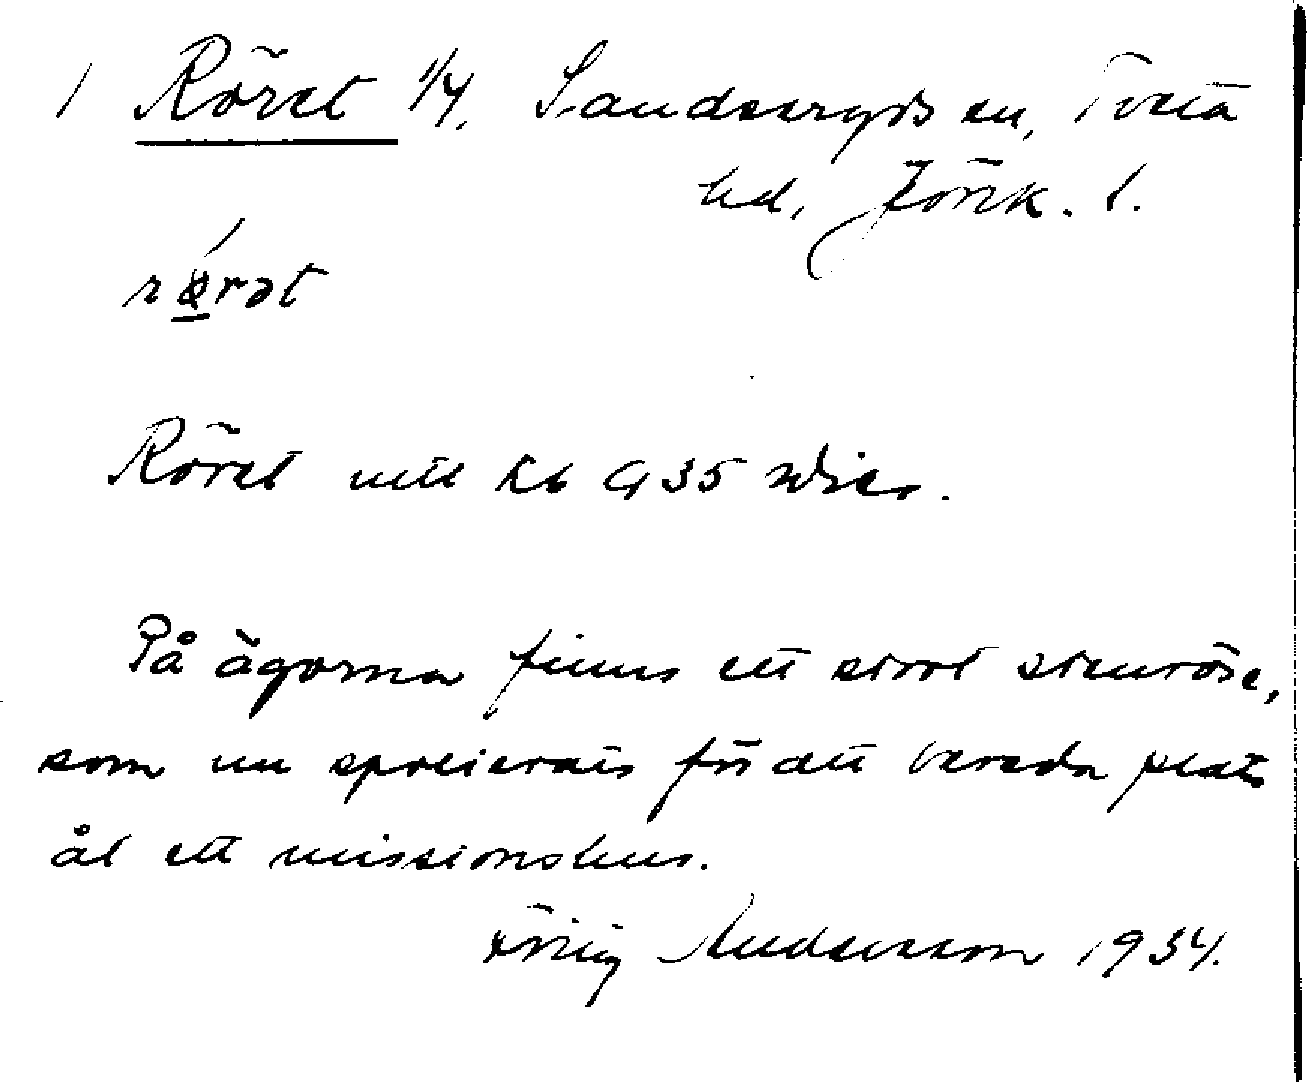 1 Röret 1/4, Sandseryds sn, Tveta
hd, Jönk. l.
rørət
Röret mtl Kb G 35
På ägorna finns ett stort stenröse,
som nu spolierats för att bereda plats
åt ett missionshus.
Erik Andersson 1934.